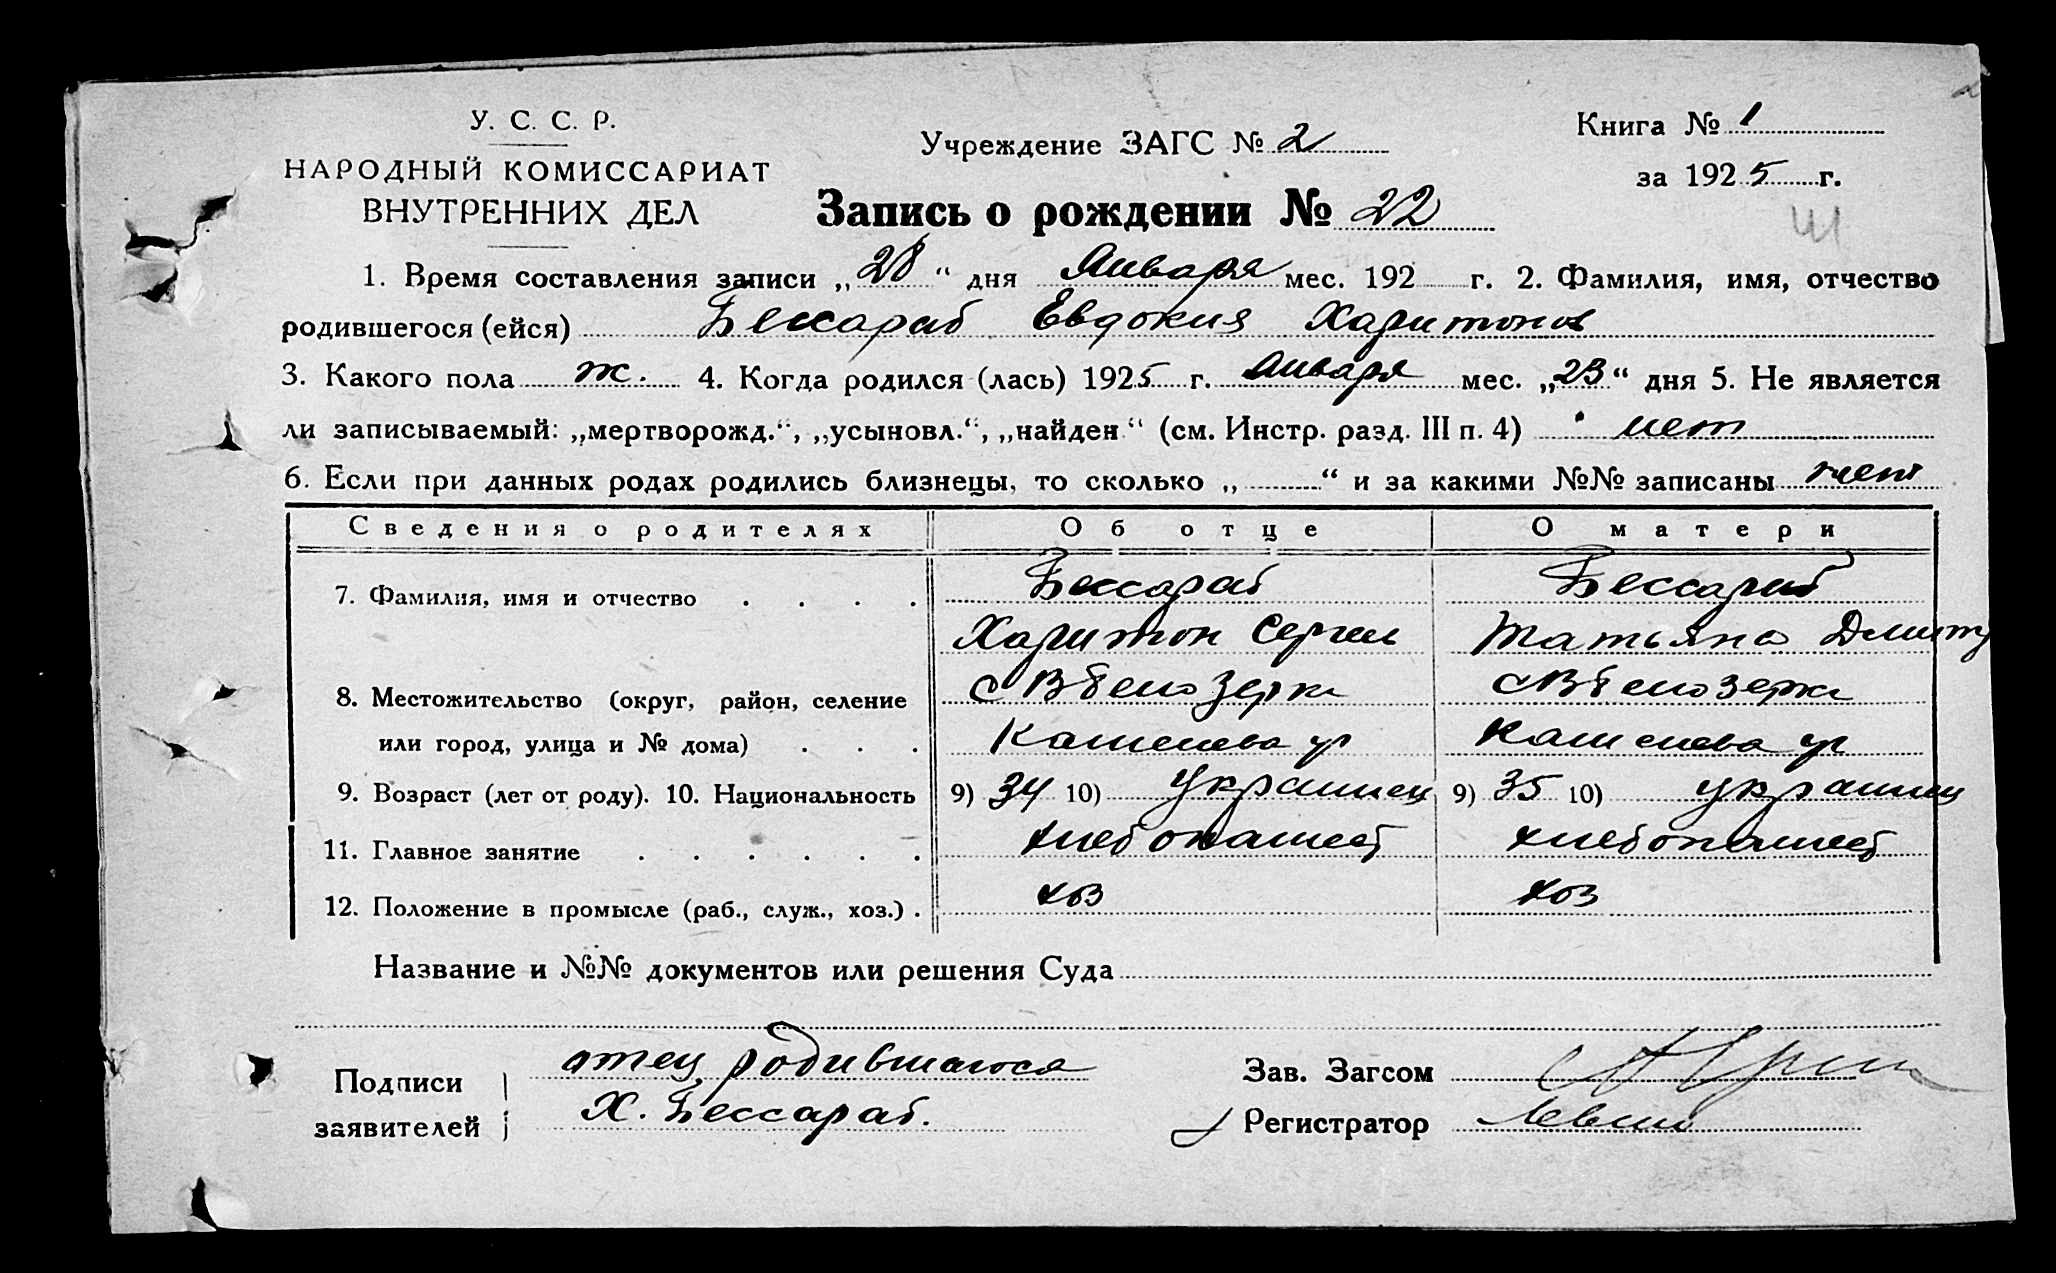 У. С. С. Р.
НАРОДНЫЙ КОМИССАРИАТ
ВНУТРЕННИХ ДЕЛ
Учреждение ЗАГС № 2
Книга № 1
за 1925 г.
Запись о рождении № 22
1. Время составления записи „28“ дня Января мес. 192 г. 2. Фамилия, имя, отчество
родившегося (ейся) Бессараб Евдокия Харитонов
3. Какого пола ж. 4. Когда родился (лась) 1925 г. января мес. „23“ дня 5. Не является
ли записываемый: „мертворожд.“, „усыновл.“, „найден“ (см. Инстр. разд. III п. 4) нет
6. Если при данных родах родились близнецы, то сколько „ “ и за какими №№ записаны нет
Сведения о родителях Об отце О матери
7. Фамилия, имя и отчество Бессараб Бессараб
Харитон Сергее Татьяна Дмитр
8. Местожительство (округ, район, селение с В Белозерка с В Белозерка
или город, улица и № дома) ул ул
9. Возраст (лет от роду). 10. Национальность 9) 34 10) Украинец 9) 35 10) украинец
11. Главное занятие хлебопашест хлебопашест
12. Положение в промысле (раб., служ., хоз.) хоз хоз
Название и №№ документов или решения Суда
Подписи заявителей отец родившагося
Х. Бессараб.
Зав. Загсом
Регистратор